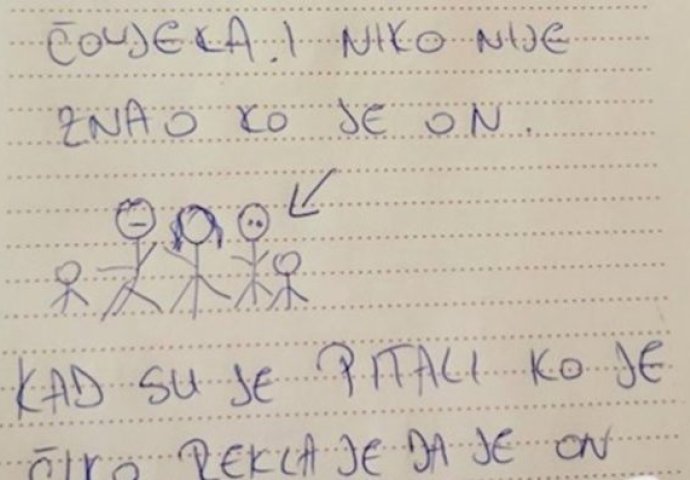 ČOVJEKA. I NIKO NIJE
ZNAO KO JE ON.
KAD SU JE PITALI KO JE
ČIKO REKLA JE DA JE ON